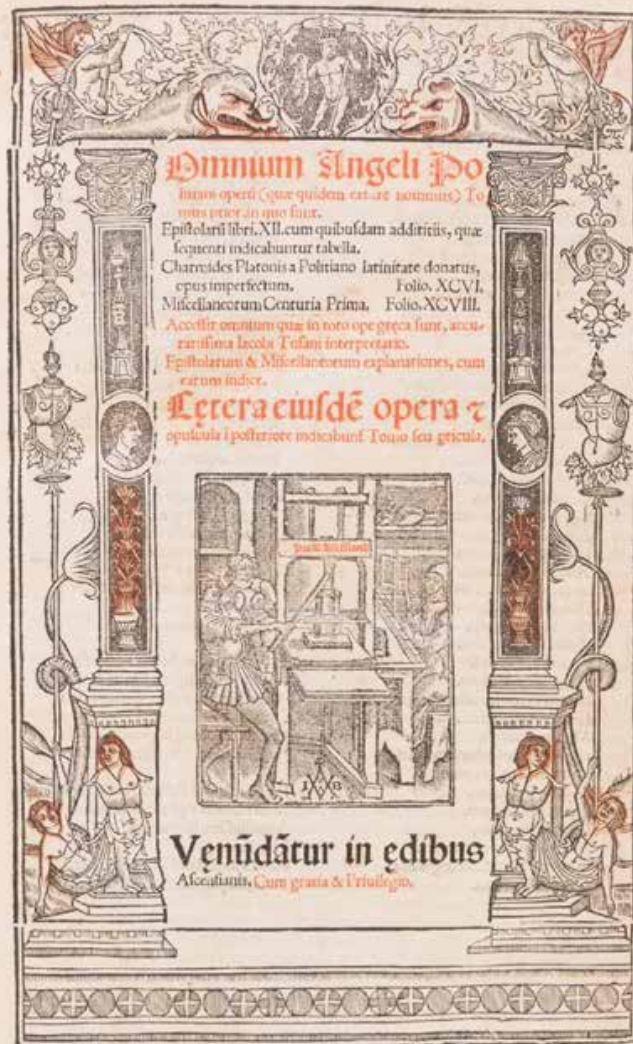 Omnium Angeli Po
litiani operũ (quæ quidem extare nouimus) To
mus prior: in quo sunt.
Epistolarũ libri. XII. cum quibusdam additiis, quæ
sequenti indicabuntur tabella.
Charmides Platonis a Politiano latinitate donatus,
opus imperfectum. Folio. XCVI.
Miscellaneorum Centuria Prima. Folio. XCVIII.
Accessit omnium quæ in toto ope gręca sunt, accu-
ratissima Iacobi Tusani interpretatio.
Epistolarum & Miscellaneorum explanationes, cum
earum indice.
Cętera eiusdẽ opera ⁊
opuscula ĩ posteriore indicabunt Tomo seu
Prelũ Ascẽsianũ
I B
Vęnũdãtur in ędibus
Ascensianis. Cum gratia & Priuilegio.